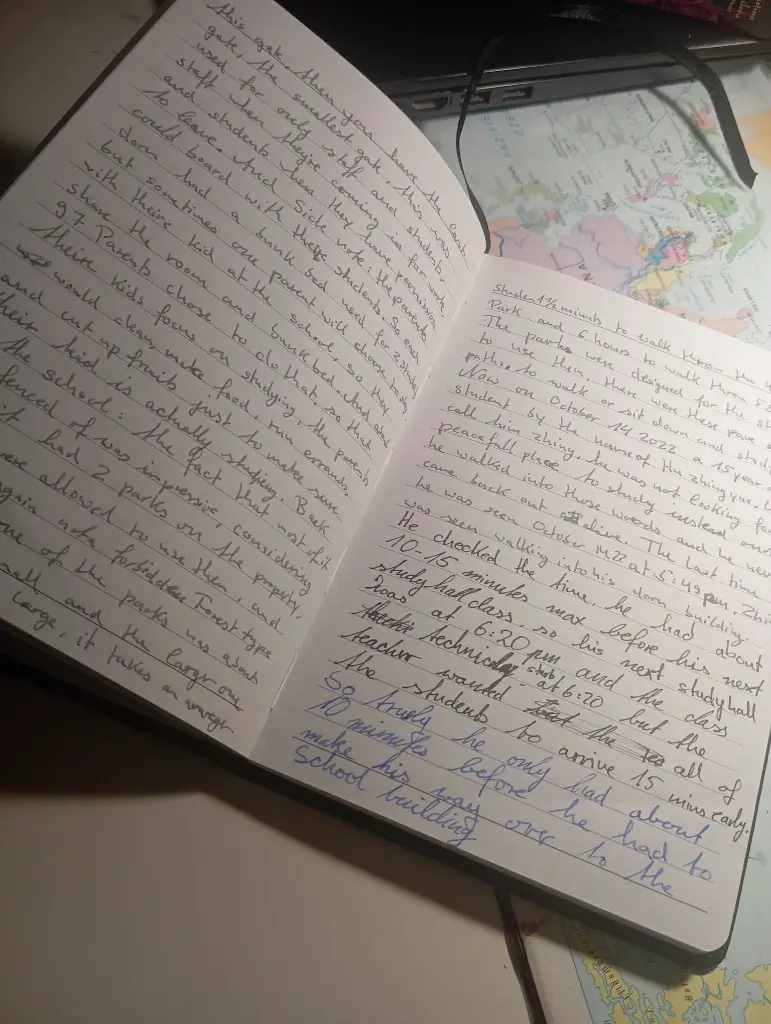 this gate. then you have the last
gate, the smallest gate, this was
used for only staff and students-
staff when theyre coming in for work
and students when they have permission
to leave. And Side note: the parents
could board with their students. So each
dorm had a bunk bed used for 2 students
but sometimes one parent will choose to stay
with theire kid at the school, so they
share the room and bunk bed. And about
97 Parents chose to do that, so that
theire kids focus on studying, the parents
would clean, make food, run errands,
and cut up fruits just to make sure
their kid is actually studying. Back
the school: the fact that most of it
fenced of was impressive, considering
it had 2 parks on the property,
were allowed to use them, and
again not a forbidden Forest type
one of the parks was about
small and the larger one
large, it takes an avreger
student 1½ minuts to walk throw the
Park and 6 hours to walk throw
The parks were designed for the
to use them, there were these pave
paths, to walk or sit down and study
Now on October 14 2022 a 15 year
student by the name of Hu zhing yue,
call him zhing, he was not looking for
peacefull place to study instead
he walked into those woods and he never
came back out alive. The last time
he was seen October 14 22 at 5:49 pm. Zhi
was seen walking into his dorm building.
He checked the time, he had about
10-15 minutes max before his next
study hall class, so his next study hall
was at 6:20 pm and the class
technicaly starts at 6:20 but the
teacher wanted all of
the students to arrive 15 mins early.
So truly he only had about
10 minutes before he had to
make his way over to the
School building